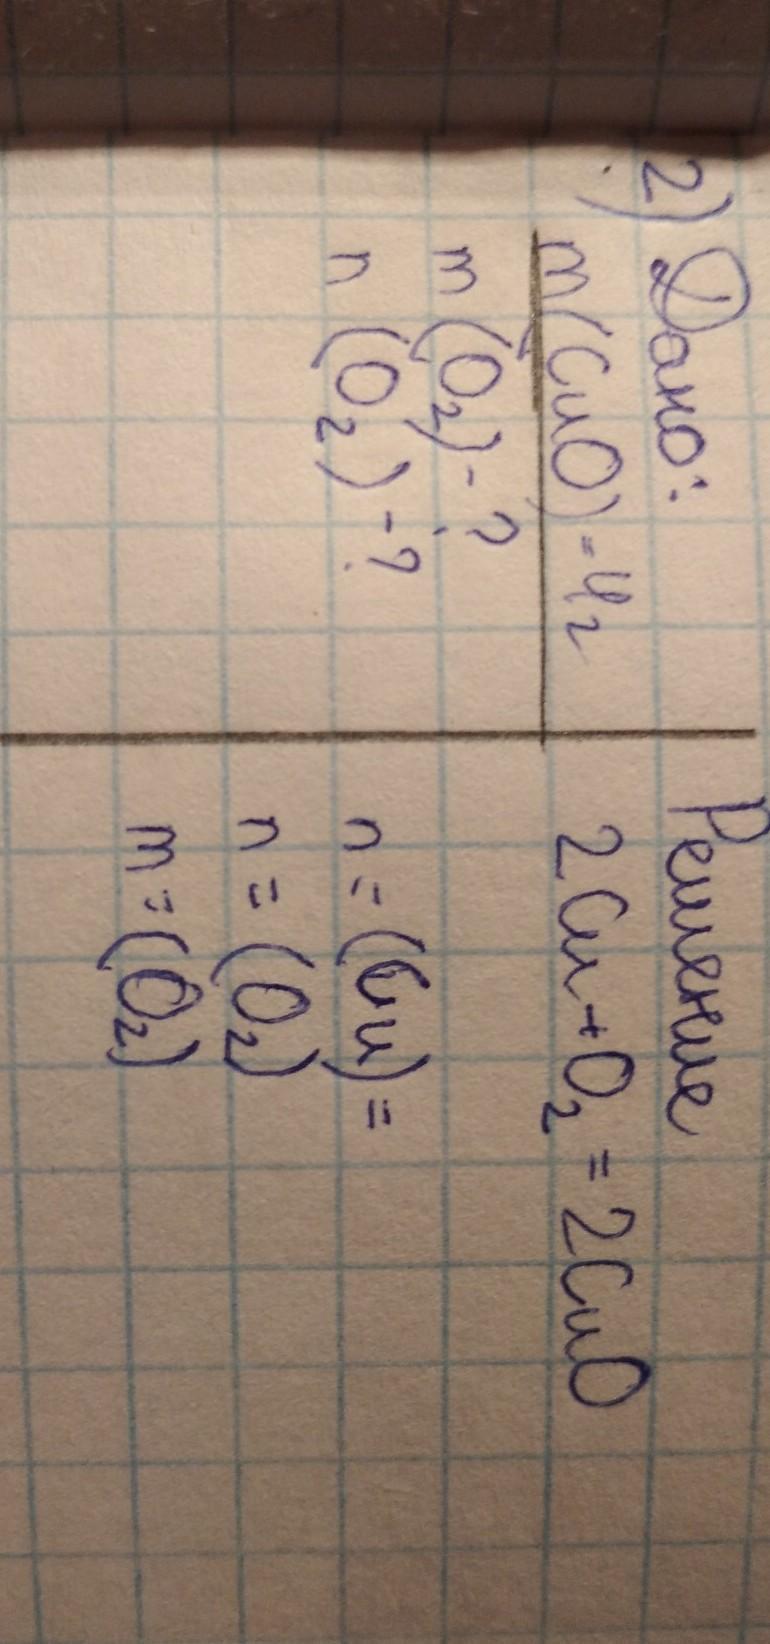 2) Дано:
m(CuO)=4г
m (O₂)-?
n (O₂)-?
Решение
2Cu+O₂=2CuO
n=(Cu)=
n=(O₂)
m=(O₂)